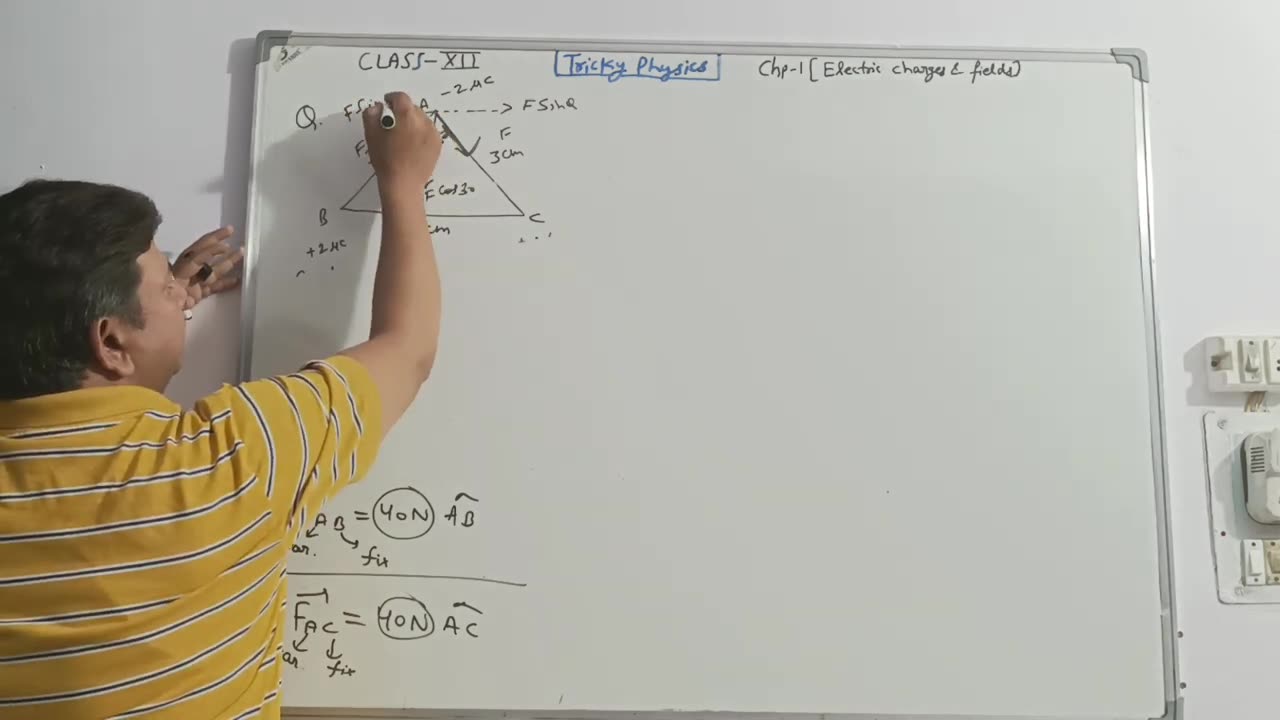 CLASS-XII
Tricky Physics
Chp-1 [Electric charges & fields]
-2 μC
Q.
A
F SinQ
F
3cm
F Cos30
B
C
cm
+2 μC
AB = 40N AB
fix
F AC = 40N AC
fix